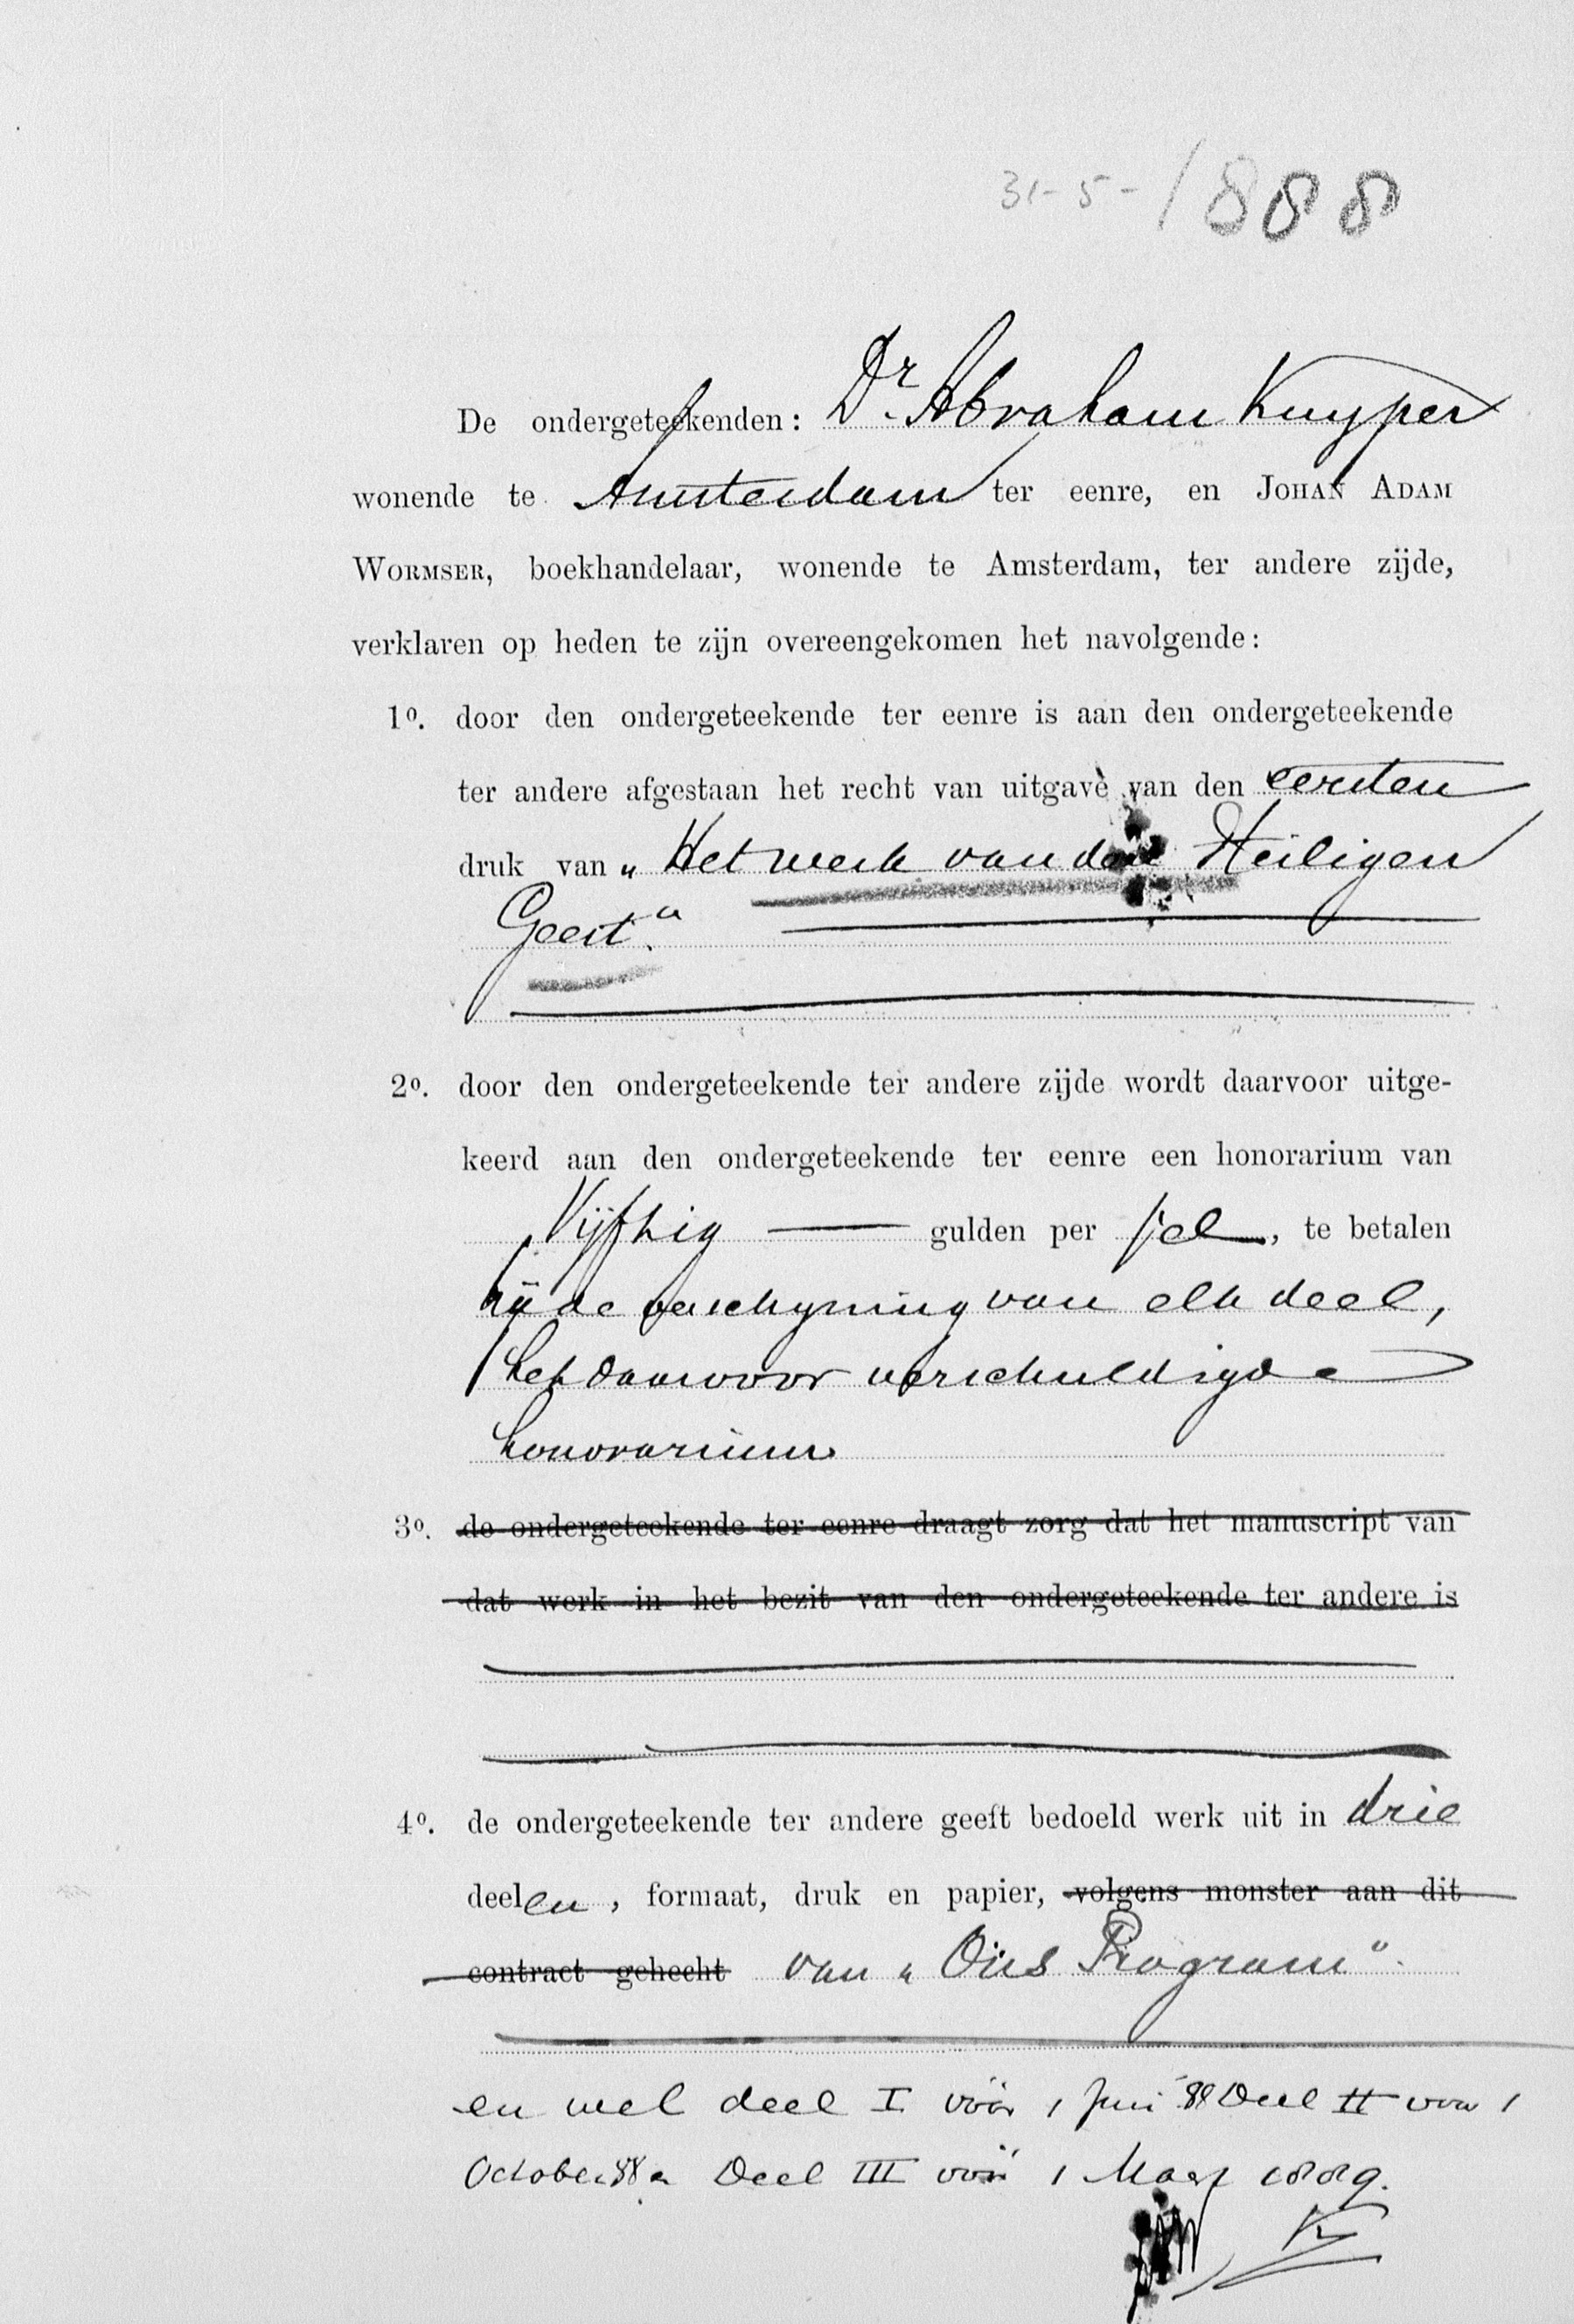 31-5-1888
De ondergeteekenden: Dr. Abraham Kuyper
wonende te Amsterdam ter eenre, en Johan Adam
Wormser, boekhandelaar, wonende te Amsterdam, ter andere zijde,
verklaren op heden te zijn overeengekomen het navolgende:
1o. door den ondergeteekende ter eenre is aan den ondergeteekende
ter andere afgestaan het recht van uitgave van den eersten
druk van „Het werk van den Heiligen
Geest."
2o. door den ondergeteekende ter andere zijde wordt daarvoor uitge-
keerd aan den ondergeteekende ter eenre een honorarium van
Vijftig gulden per vel, te betalen
bij de verschijning van elk deel,
het daarvoor verschuldigde
honorarium
3o. de ondergeteekende ter eenre draagt zorg dat het manuscript van
dat werk in het bezit van den ondergeteekende ter andere is
4o. de ondergeteekende ter andere geeft bedoeld werk uit in drie
deelen, formaat, druk en papier, volgens monster aan dit
contract gehecht van „Ons Program".
en wel deel I vóór 1 Juni 88 Deel II voor 1
October 88 en Deel III vóór 1 Maart 1889.